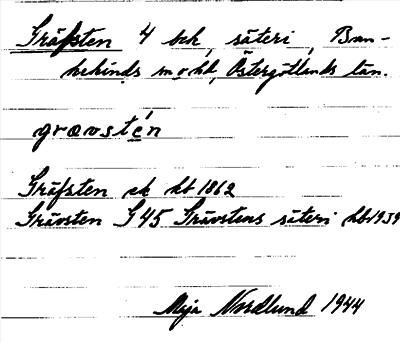 Gräfsten 4 bck, säteri, Ban-
kekinds mohd, Östergötlands län.
grævstén
Gräfsten ek hb 1862
Grävsten G45 Grävstens säteri hb 1939
Maja Nordlund 1944